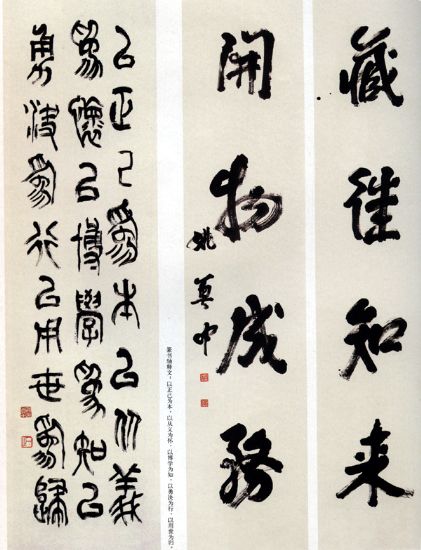 藏往知来
開物成務
姚奠中
篆书轴释文：以正己为本，以从义为怀，以博学为知，以勇决为行，以用世为归。
以正己為本以从義
為懷以博學為知以
勇決為行以用世為歸